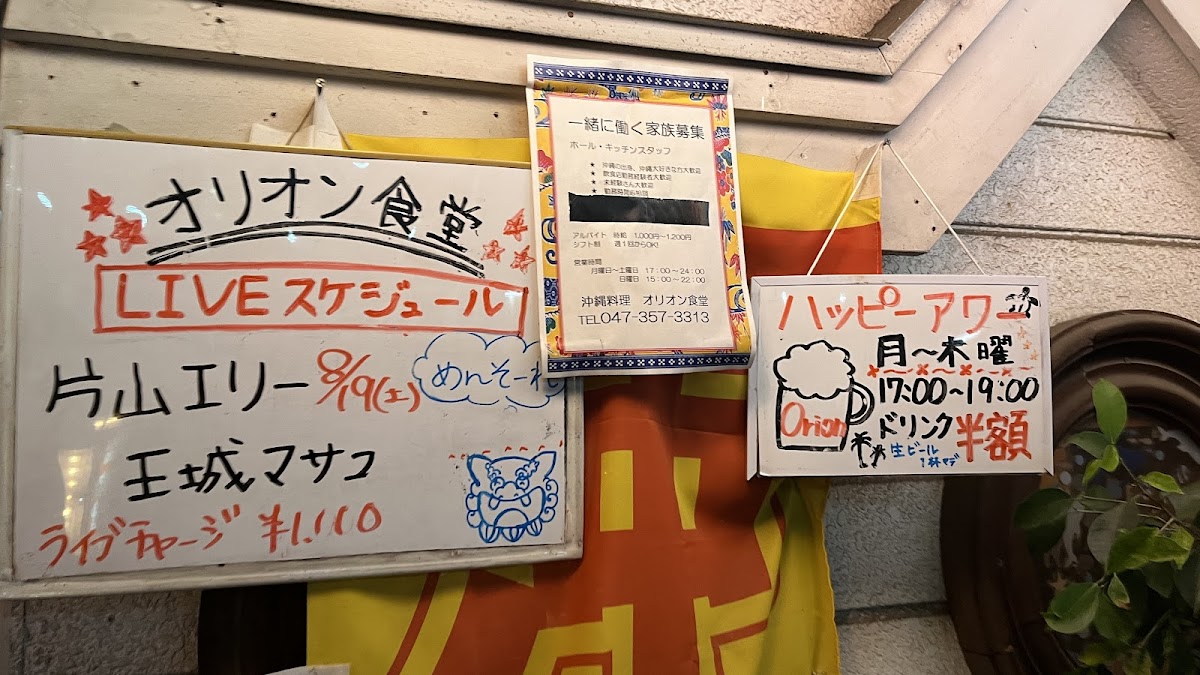 オリオン食堂
LIVEスケジュール
片山エリー 8/19(土)
めんそーれ
玉城マサコ
ライブチャージ ¥1,110
一緒に働く家族募集
ホール・キッチンスタッフ
★ 沖縄の出身、沖縄大好きな方大歓迎
★ 飲食店勤務経験者大歓迎
★ 未経験さん大歓迎
★ 勤務時間応相談
アルバイト 時給 1,000円~1,200円
シフト制 週1回からOK!
営業時間
月曜日~土曜日 17:00~24:00
日曜日 15:00~22:00
沖縄料理 オリオン食堂
TEL047-357-3313
ハッピーアワー
月~木曜
17:00~19:00
Orion
ドリンク半額
生ビール
1杯マデ